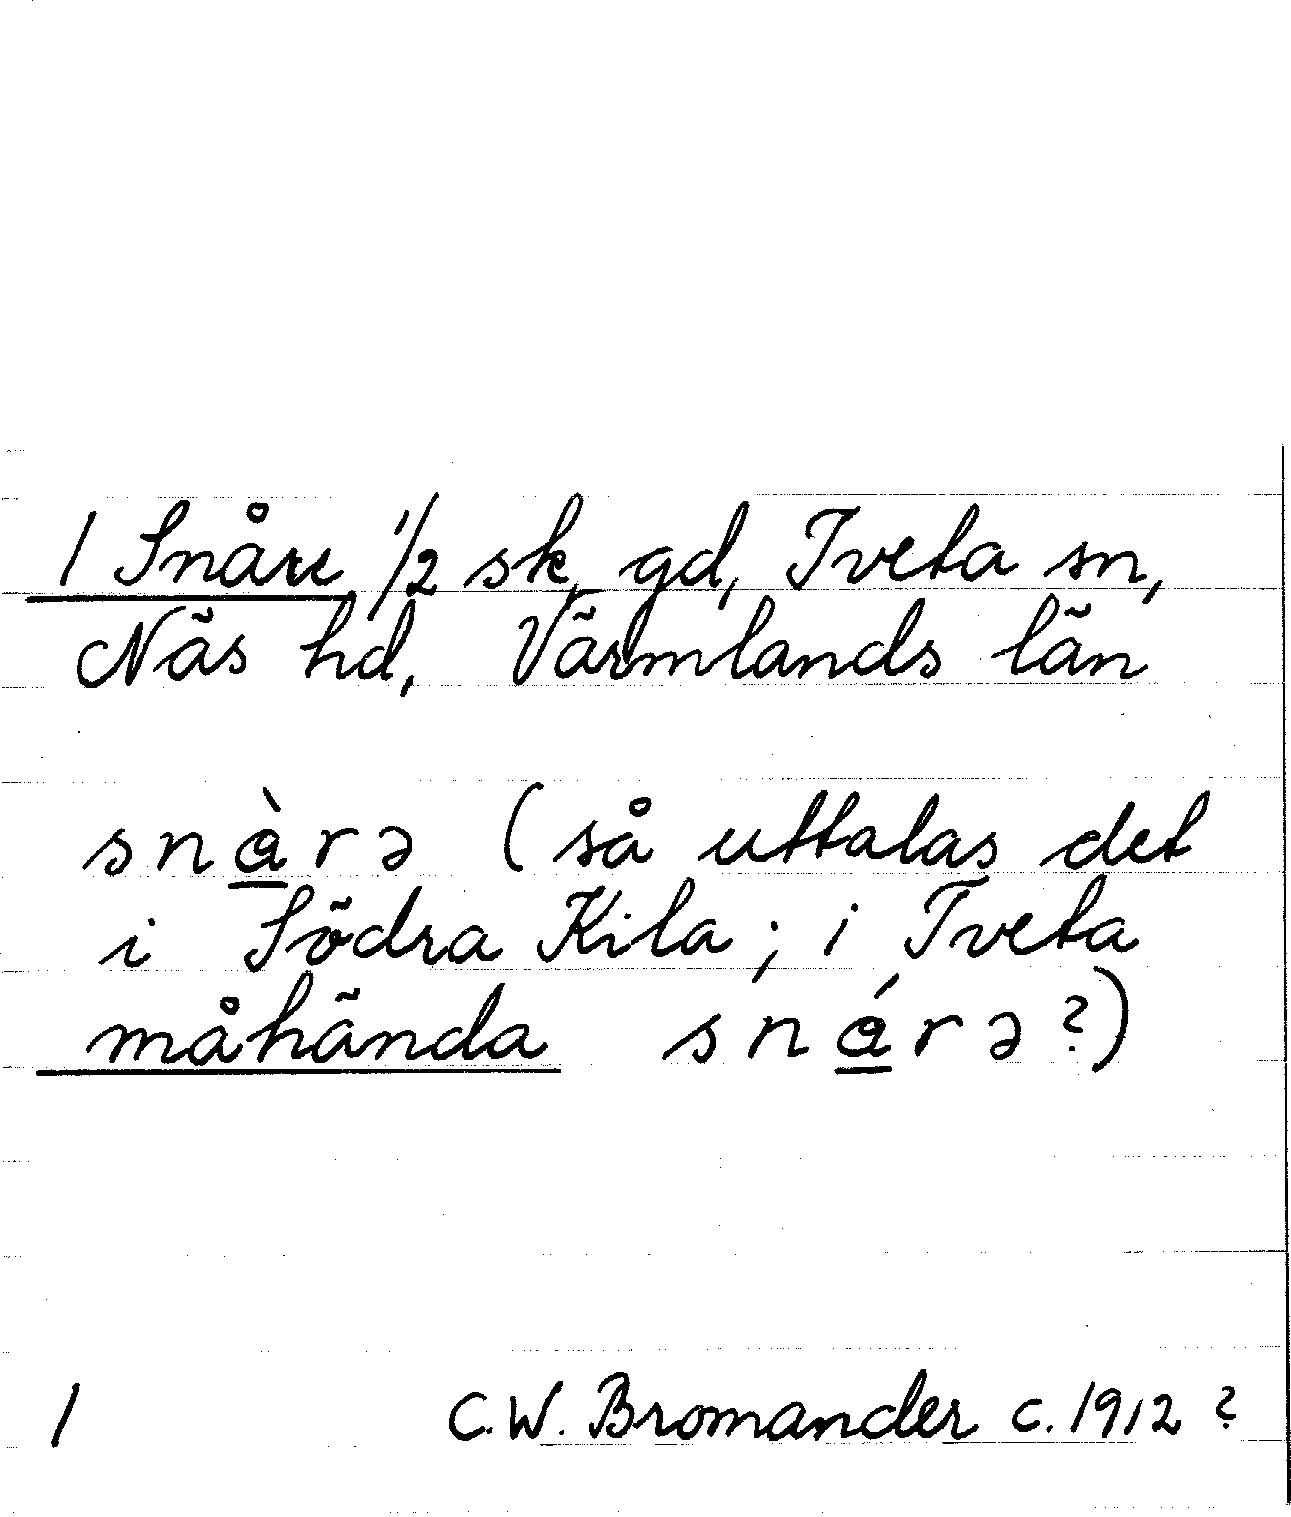 1 Snåre 1/2 sk, gd, Tveta sn,
Näs hd, Värmlands län
snàrə (så uttalas det
i Södra Kila; i Tveta
måhända snárə?)
1 C.W. Bromander c. 1912 ?